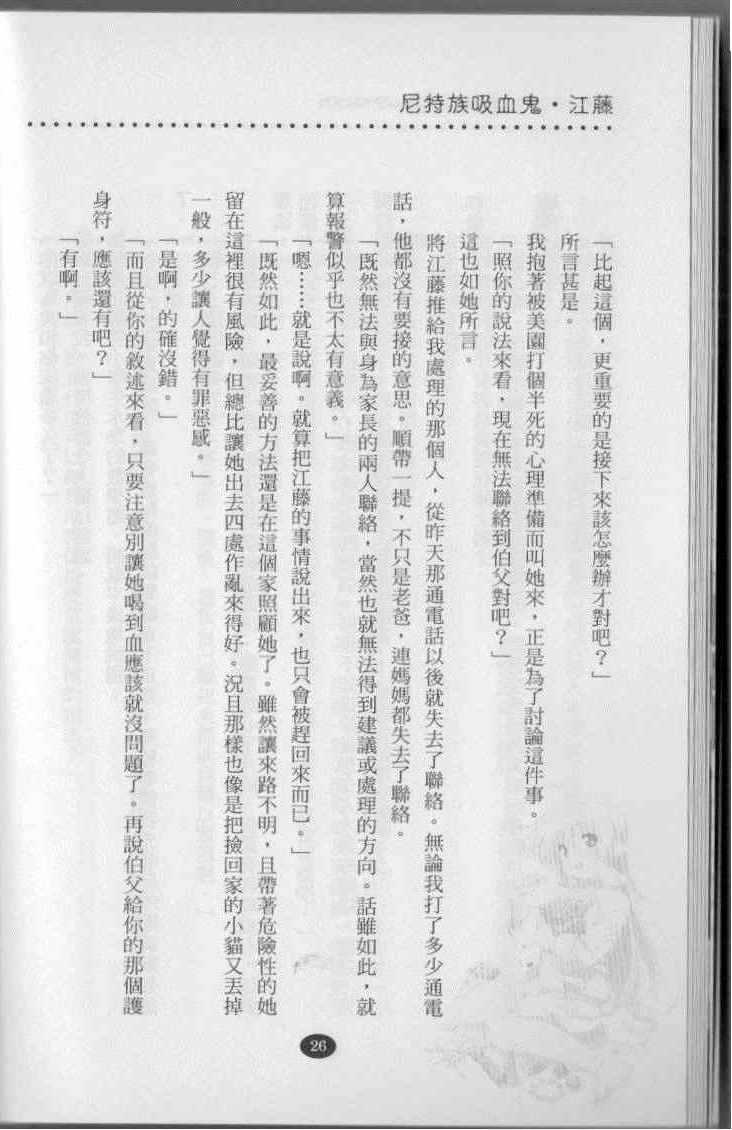 尼特族吸血鬼・江藤
「比起這個，更重要的是接下來該怎麼辦才對吧？」
所言甚是。
我抱著被美園打個半死的心理準備而叫她來，正是為了討論這件事。
「照你的說法來看，現在無法聯絡到伯父對吧？」
這也如她所言。
將江藤推給我處理的那個人，從昨天那通電話以後就失去了聯絡。無論我打了多少通電
話，他都沒有要接的意思。順帶一提，不只是老爸，連媽媽都失去了聯絡。
「既然無法與身為家長的兩人聯絡，當然也就無法得到建議或處理的方向。話雖如此，就
算報警似乎也不太有意義。」
「嗯……就是說啊。就算把江藤的事情說出來，也只會被趕回來而已。」
「既然如此，最妥善的方法還是在這個家照顧她了。雖然讓來路不明，且帶著危險性的她
留在這裡很有風險，但總比讓她出去四處作亂來得好。況且那樣也像是把撿回家的小貓又丟掉
一般，多少讓人覺得有罪惡感。」
「是啊，的確沒錯。」
「而且從你的敘述來看，只要注意別讓她喝到血應該就沒問題了。再說伯父給你的那個護
身符，應該還有吧？」
「有啊。」
26